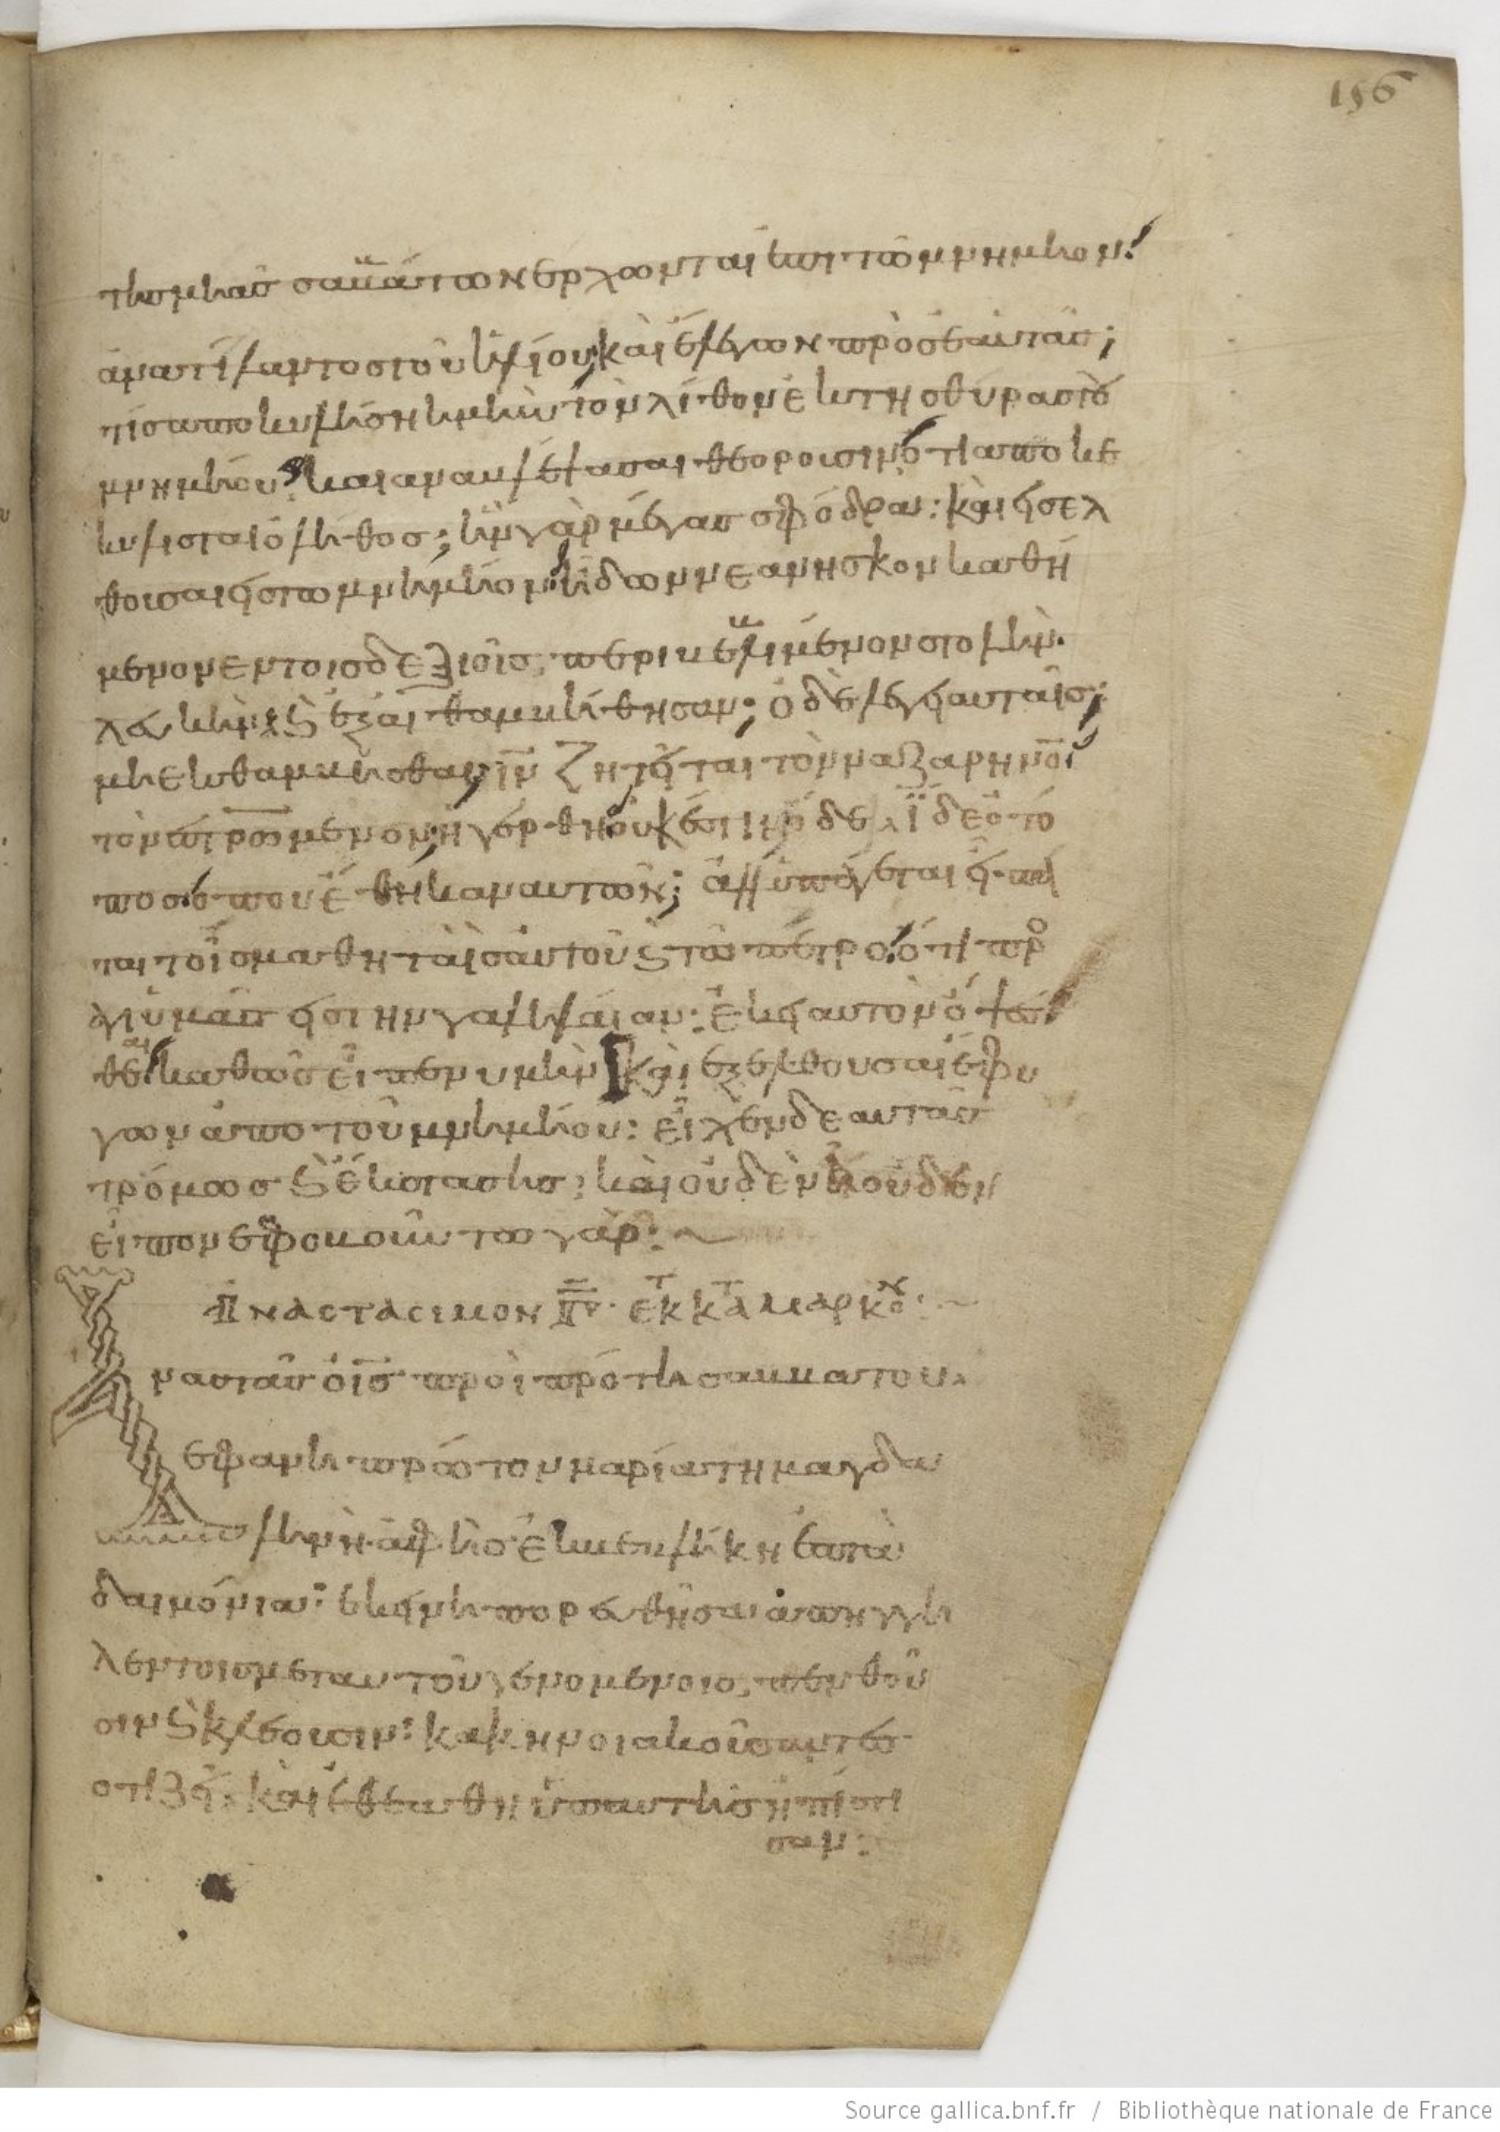 156
τησ μιάσ σαββάτων ερχωνται επι τω μνημηον·
ἀνατίλαντοσ τοῦ ἡλίου, καὶ ἔλεγων πρὸσ ἑαυτάσ;
τίσ αποκυλήσῃ ημὴν τὸν λίθον ἐκ τησ θύρασ τὸ
μνημήου; και αναυλέψασαι θεοροισιν ὅτι αποκε
κυλισται ὁ λήθοσ; ἠν γὰρ μέγασ σφόδρα: καὶ ησελ
θοισαι ηστω μνημήον ἠδων νεανησκον καθή
μενον εν τοισ δεξιοῖσ, περιβεβλιμένον στολὴν
λευκὴν ϗ ἐξαιθαμβήθησαν; ὁ δὲ λέγη αυταῖσ;
μη εκθαμβησθαι ιν ζητῆται τὸν ναζαρηνὸ
τὸν στρωμενον, ηγέρθη οὐκ έστιν ὧδε ἴδε ὁ τό
ποσ ὅπου ἔθηκαν αυτων; ἀλλ ὑπάγεται η πα
ται τοῖσ μαθηταὶσ αὐτοῦ ϗ τῶ πέτρο ὅτι προ
άγι ὑμᾶσ ησ τιν γαληλαίαν: ἐκη αυτὸν ὄψεσ
θεαι καθῶσ εἶπεν υμὴν καὶ εξελθουσαι έφυ
γων ἀπο τοῦ μνημήου: εἶχεν δε αυτασ
τρόμωσ ϗ ἔκστασησ; καὶ οὐδὲνὴ οὐδεν
εἶπον εφοβουντω γάρ:
ΑΝΑCΤΑCΙΜΟΝ Γ ΕΚ Κ̅Τ̅Α ΜΑΡΚΟΝ:
Αναστασ ὁ ισ προὶ πρότη σαββατου
εφανη πρώτον μαρία τη μαγδα
ληνὴ ἀφ ησ ἐκβεβλίκη επτὰ
δαιμόνια: εκήνη πορευθῆσα ἀπηγγη
λεν τοισ μεταυτοῦ γενομενοισ, πενθοῦ
σιν ϗ κλεουσιν: κακηνοι ακοῦσαντεσ
οτι ζῆ, καὶ ἐθεαθη ὑπαυτησ ηπίστι
σαν:
Source gallica.bnf.fr / Bibliothèque nationale de France